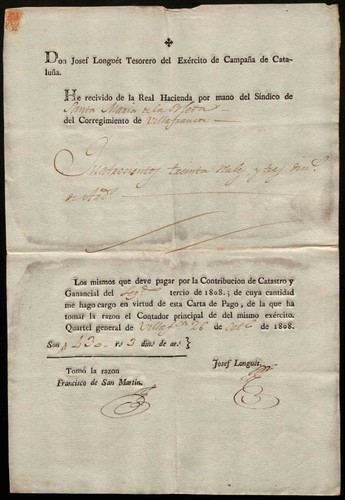 Don Josef Longuét Tesorero del Exército de Campaña de Cata-
luña.
He recivido de la Real Hacienda por mano del Sindico de
Santa Maria de la
del Corregimiento de Villafranca
Quatrocientos treinta reales y tres
de
Los mismos que deve pagar por la Contribucion de Catastro y
Ganancial del tercio de 1808.; de cuya cantidad
me hago cargo en virtud de esta Carta de Pago, de la que ha
tomar la razon el Contador principal de del mismo exército.
Quartel general de 26 de 1808.
Son 430 rs 3 dins de ars }
Josef Longuét.
Tomó la razon
Francisco de San Martin.